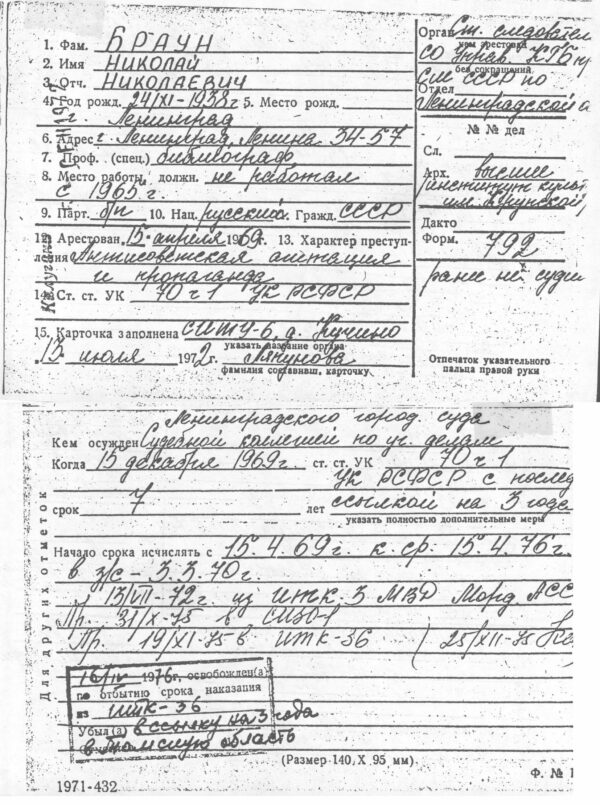 1. Фам. БРАУН
2. Имя НИКОЛАЙ
3. Отч. НИКОЛАЕВИЧ
4. Год рожд. 24/XI-1938г 5. Место рожд.
г. Ленинград
6. Адрес г. Ленинград, Ленина 34-57
7. Проф. (спец.)
8. Место работы, должн. не работал
с 1965 г.
9. Парт. б/п 10. Нац. русский. Гражд. СССР
12. Арестован 15 апреля 1969г. 13. Характер преступ-
ления Антисоветская агитация
и пропаганда
14. Ст. ст. УК 70 ч 1 УК РСФСР
15. Карточка заполнена д. Кучино
указать название органа
13 июля 1972г.
фамилия составивш. карточку
Орган Ст. следовател
кем арестован
СО КГБ пр
без сокращений
См СССР по
Отдел
Ленинградской о
№ № дел
Сл.
Арх. высшее
институт культ
им. Крупской,
Дакто
Форм. 792
ранее не судим
Отпечаток указательного
пальца правой руки
Ленинградского город. суда
Кем осужден Судебной коллегией по уг. делам
Когда 15 декабря 1969г. ст. ст. УК 70 ч 1
УК РСФСР с послед
срок 7 лет ссылкой на 3 года
указать полностью дополнительные меры
Начало срока исчислять с 15.4.69г. к. ср. 15.4.76г.
в з/с - 3.3.70г.
13/VII-72г. из ИТК-3 МВД Морд. АСС
Пр. 31/X-75 в СИЗО-1
Пр. 19/XI-75 в ИТК-36 25/XII-75
Для других отметок
1976г. освобожден(а)
по отбытию срока наказания
из ИТК-36
Убыл(а) в ссылку на 3 года
в Томскую область
(Размер 140 X 95 мм).
Ф. № 1
1971-432